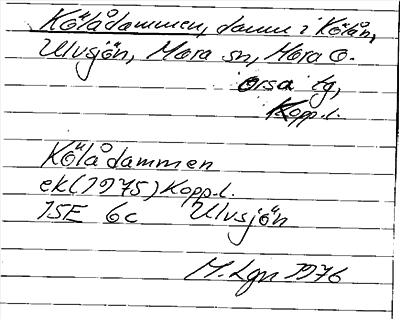 Kölådammen, damm i Kölån,
Ulvsjön, Mora sn, Mora o.
Orsa tg,
Kopp.l.
Kölådammen
ek (1975) Kopp.l.
15E 6c Ulvsjön
M. Lgn 1976